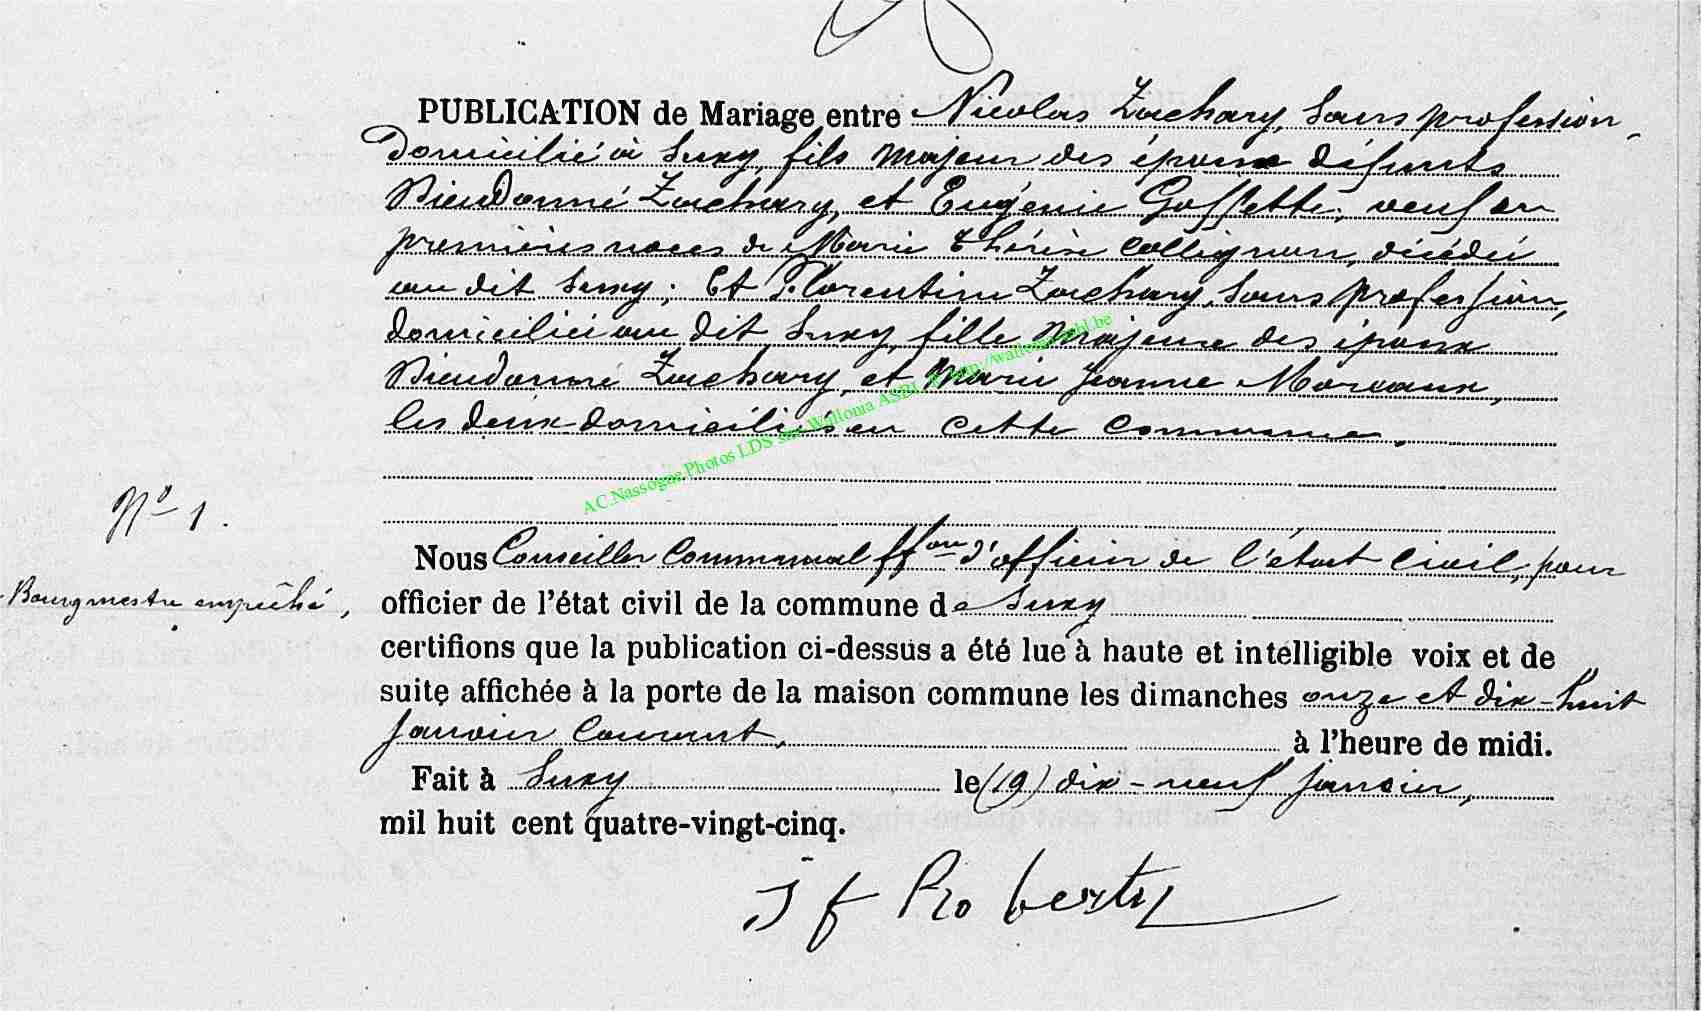 PUBLICATION de Mariage entre Nicolas Zachary, Sans profession,
Domicilié à Suxy, fils Majeur des époux défunts
Dieudonné Zachary, et Eugénie Goffette, veuf en
premières noces de Marie Thérèse Collignon, décédée
au dit Suxy; Et Florentine Zachary, Sans profession,
domiciliée au dit Suxy, fille Majeure des époux
Dieudonné Zachary, et Marie Jeanne Moreaux,
les deux domiciliés en cette commune.
AC Nassogne Photos LDS sur Wallonia ASBL
N° 1.
Nous Conseiller Communal ff.on d'officier de l'état Civil, pour
Bourgmestre empêché,
officier de l'état civil de la commune de Suxy
certifions que la publication ci-dessus a été lue à haute et intelligible voix et de
suite affichée à la porte de la maison commune les dimanches onze et dix-huit
Janvier Courant, à l'heure de midi.
Fait à Suxy le (19) dix-neuf Janvier,
mil huit cent quatre-vingt-cinq.
J f Roberty